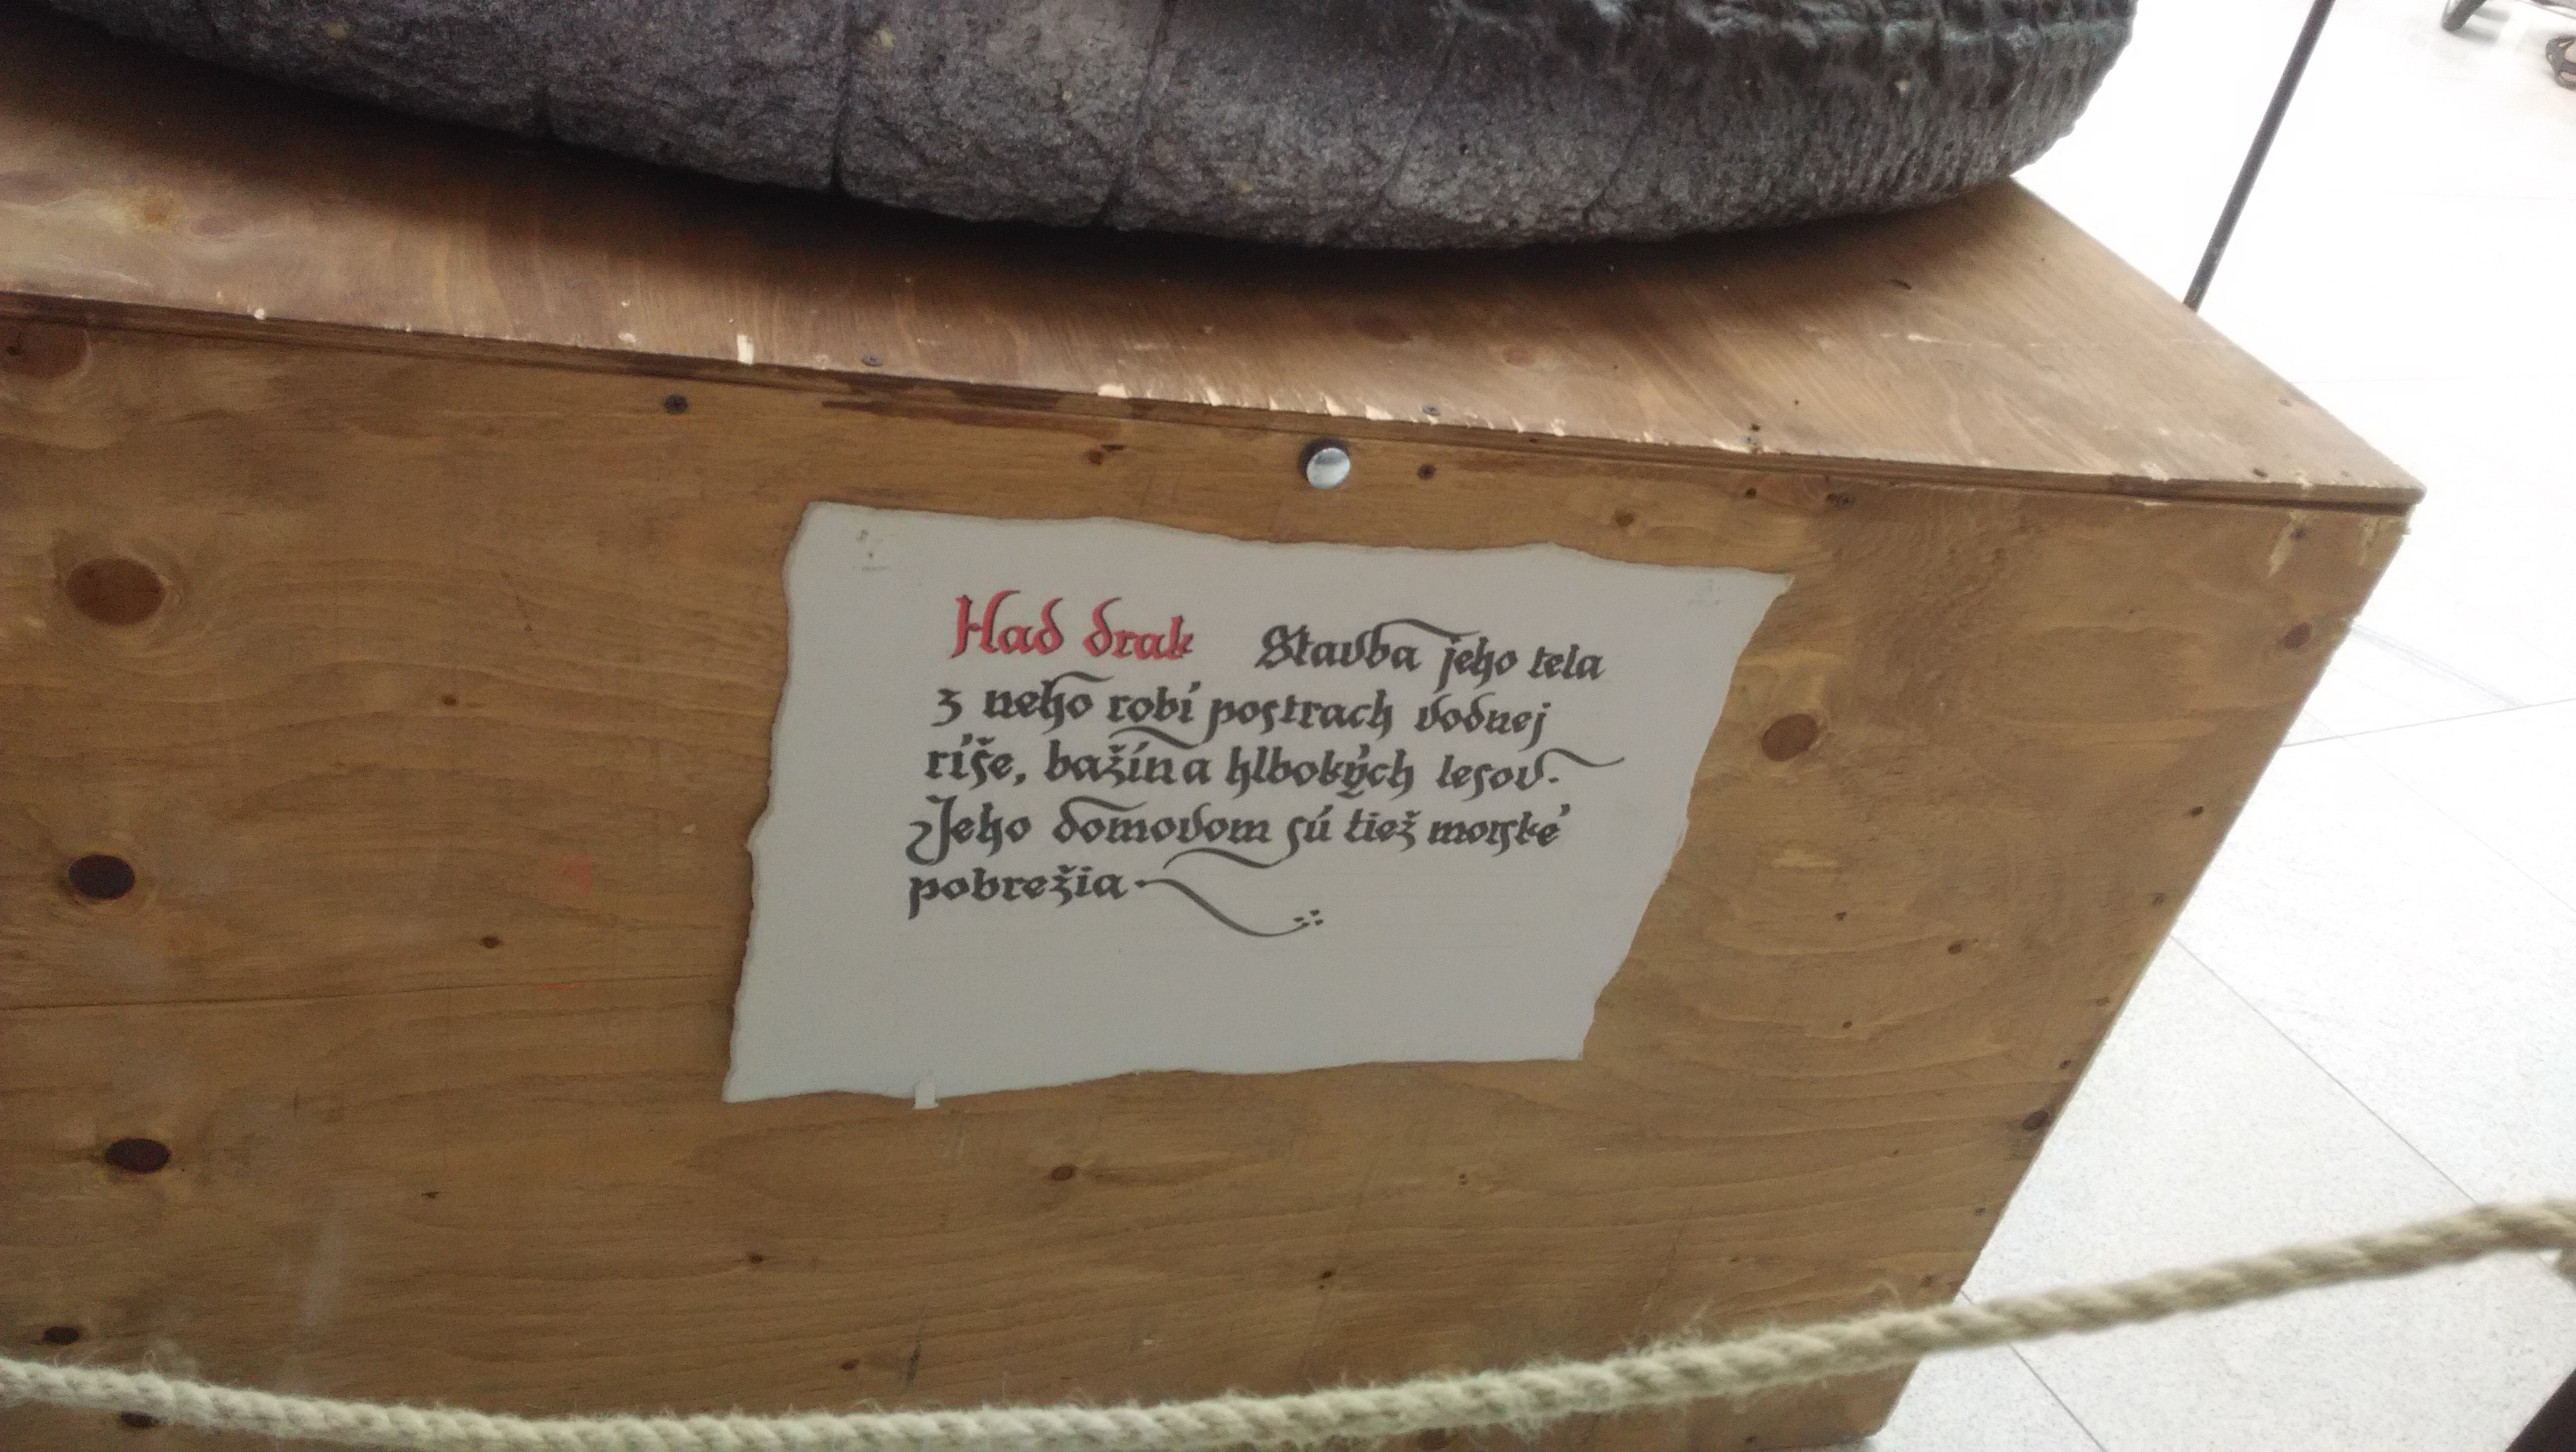 Had drak Stavba jeho tela
z neho robí postrach vodnej
ríše, bažín a hlbokých lesov.
Jeho domovom sú tiež morské
pobrežia.